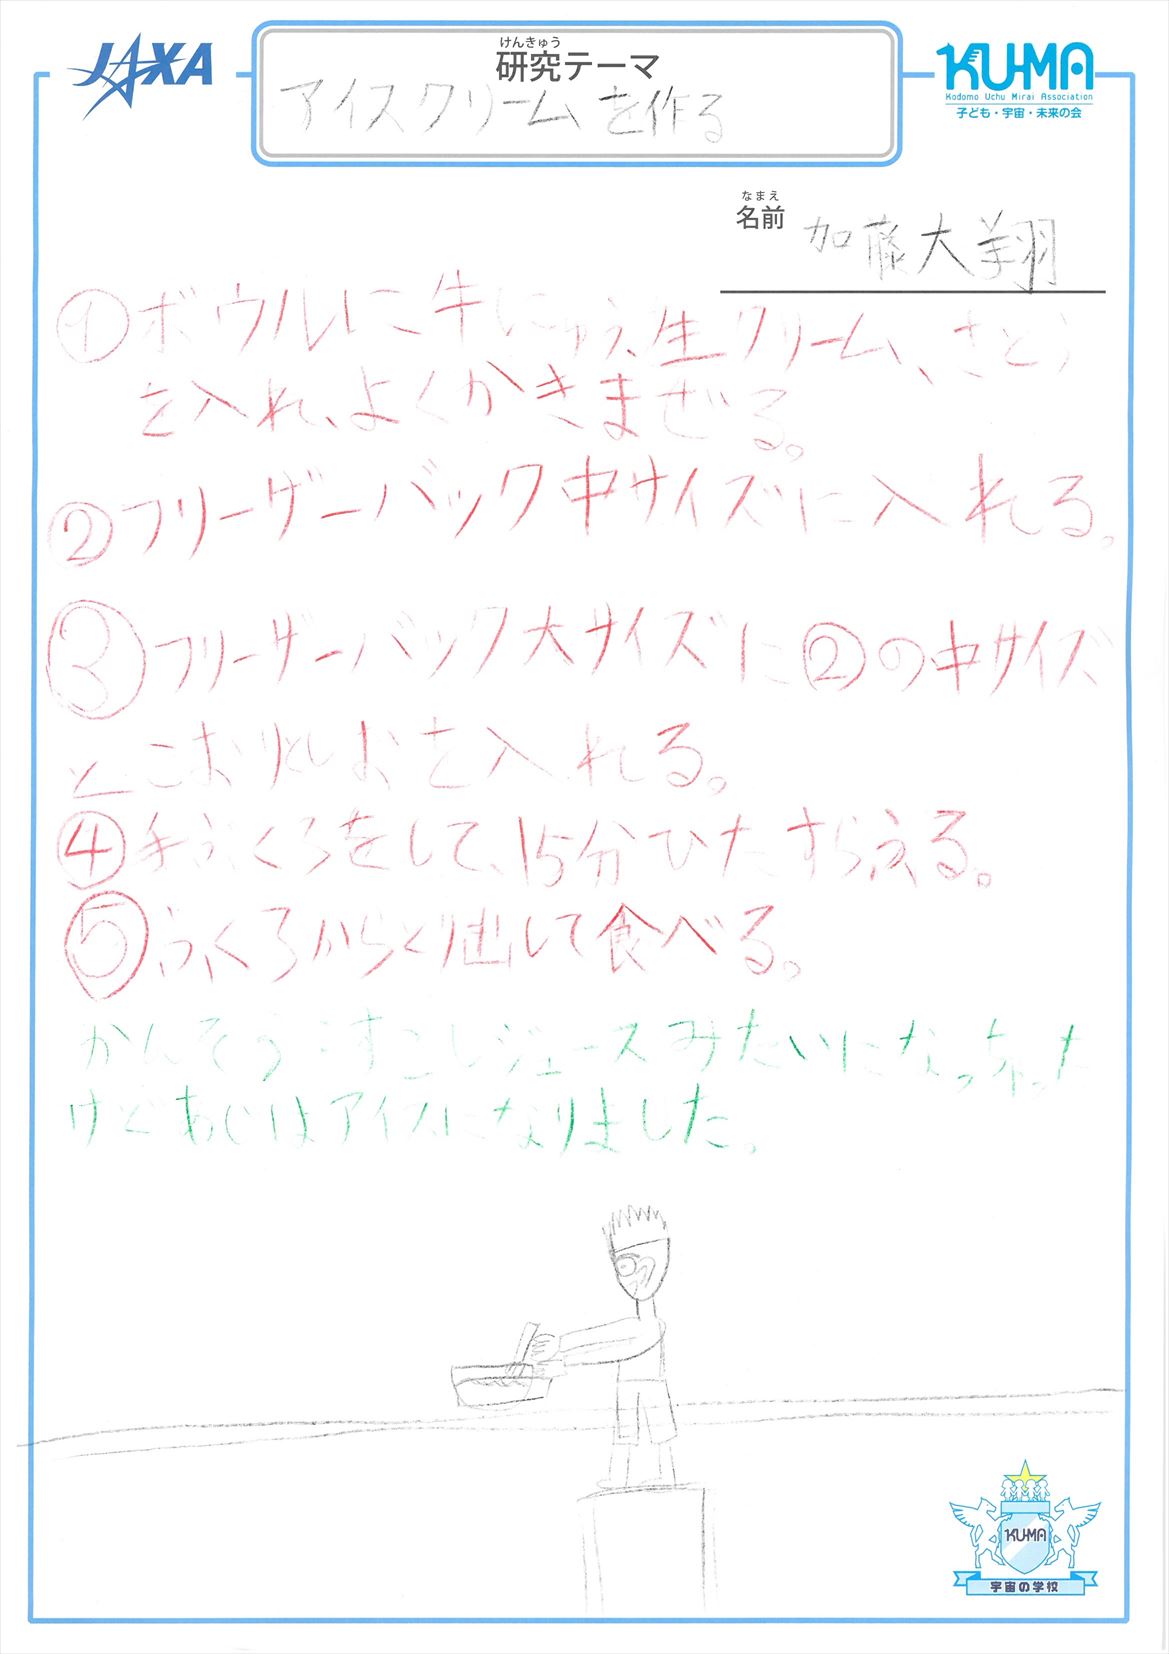 JAXA
けんきゅう
研究テーマ
アイスクリームを作る
KU-MA
Kodomo Uchu Mirai Association
子ども・宇宙・未来の会
なまえ
名前 加藤大翔
①ボウルに牛にゅう、生クリーム、さとう
を入れ、よくかきまぜる。
②フリーザーバック中サイズに入れる。
③フリーザーバック大サイズに②の中サイズ
とこおりとしおを入れる。
④手ぶくろをして、15分ひたすらふる。
⑤ふくろからとり出して食べる。
かんそう:すこしジュースみたいになっちゃった
けどあじはアイスになりました。
KU-MA
宇宙の学校